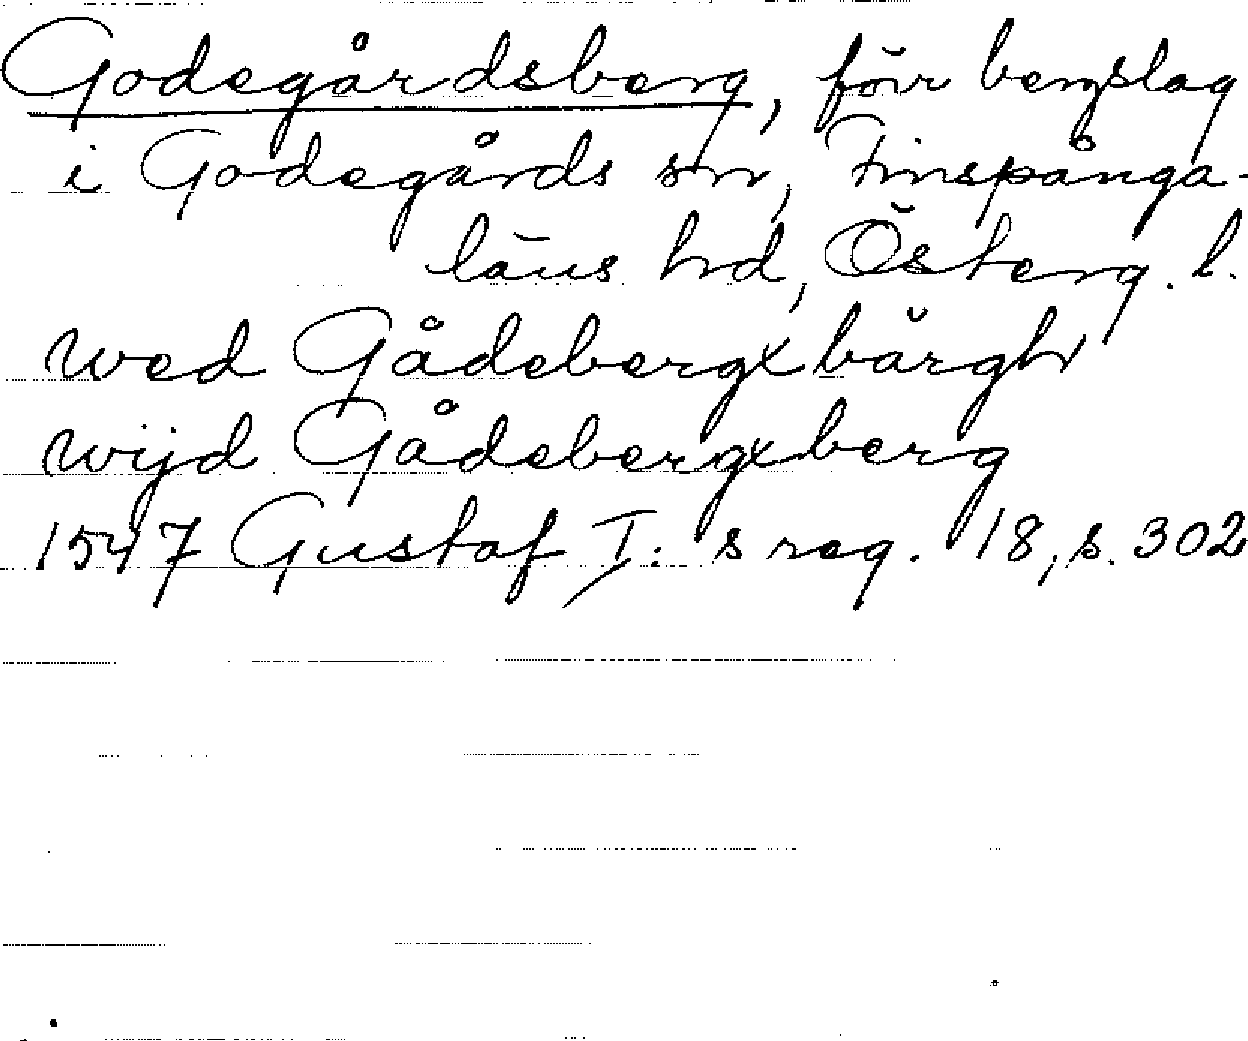 Godegårdsberg, förr bergslag
i Godegårds sn, Finspånga-
läns hd, Österg. l.
wed Gådebergxbärgh
wijd Gådebergxberg
1547 Gustaf I: s reg. 18, s. 302